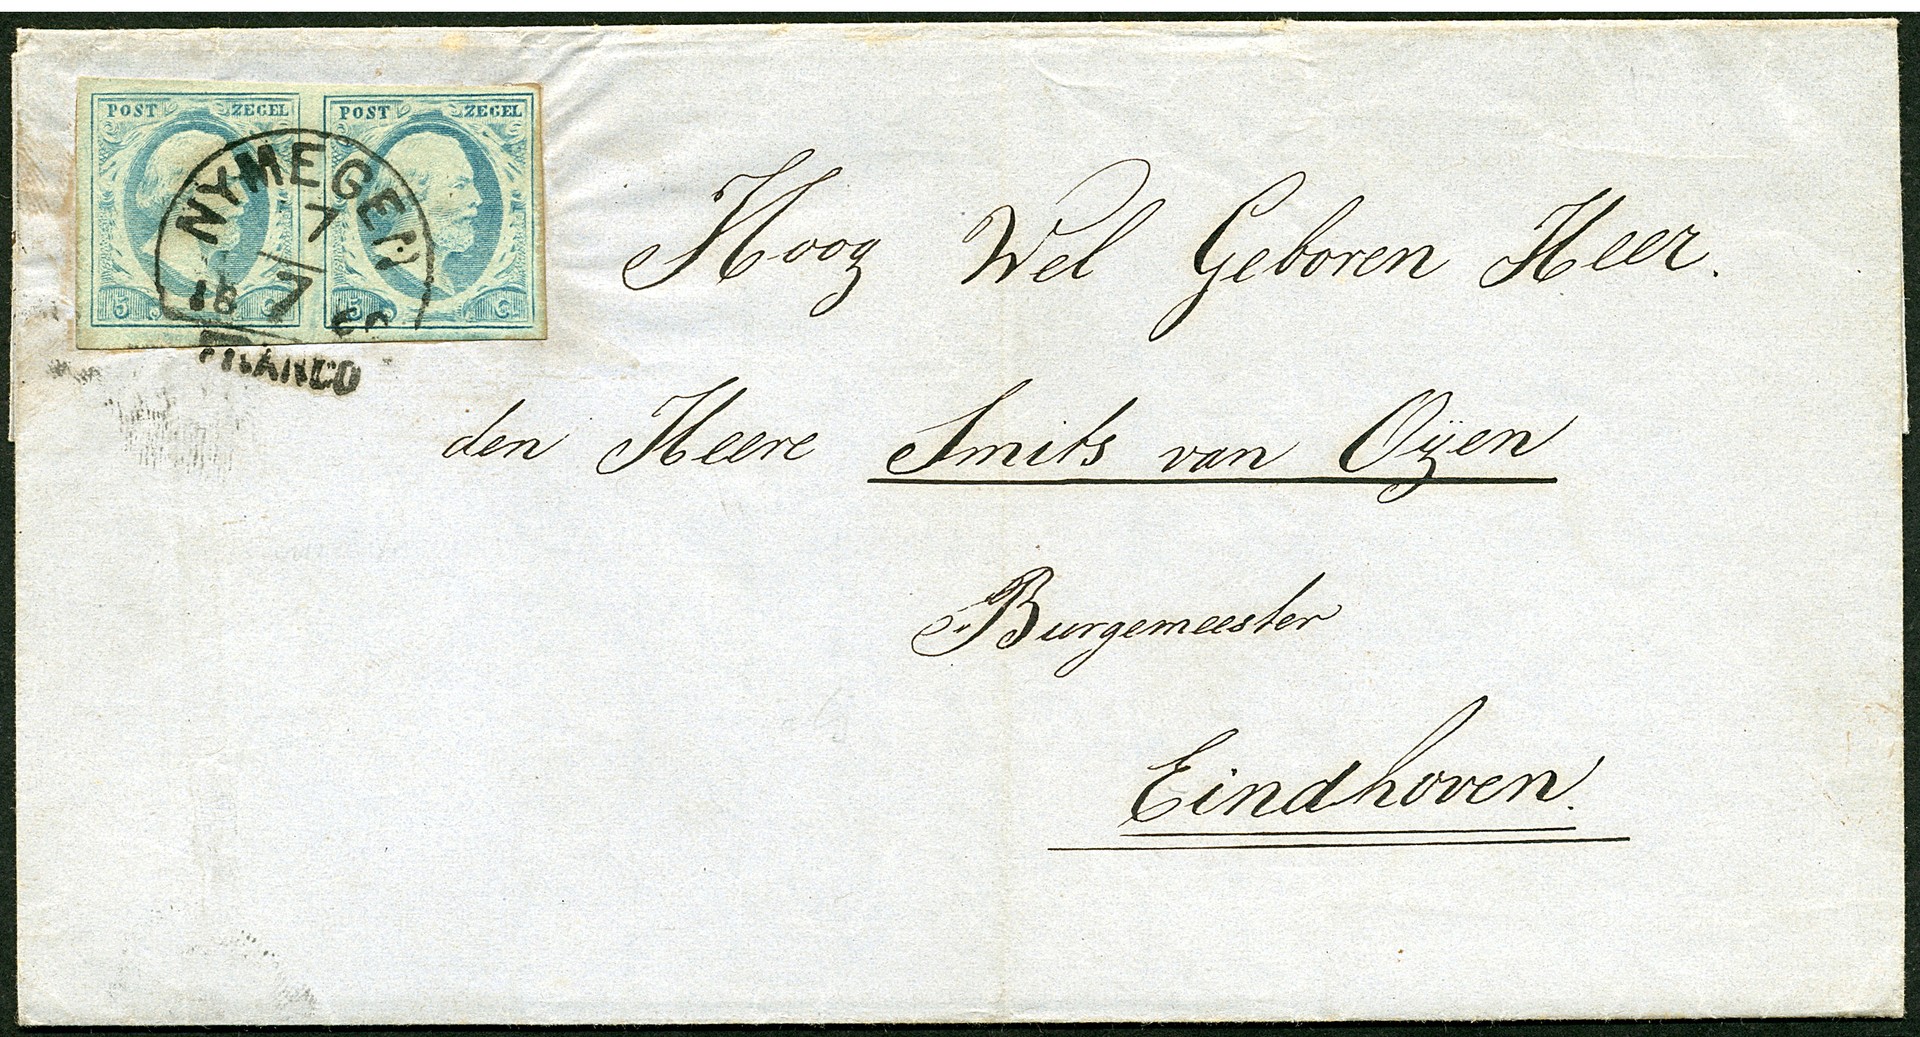 POST ZEGEL POST ZEGEL
NYMEGEN
7
7
18 60
5 C. 5 C.
FRANCO
Hoog Wel Geboren Heer.
den Heere Smits van Oÿen
Burgemeester
Eindhoven.